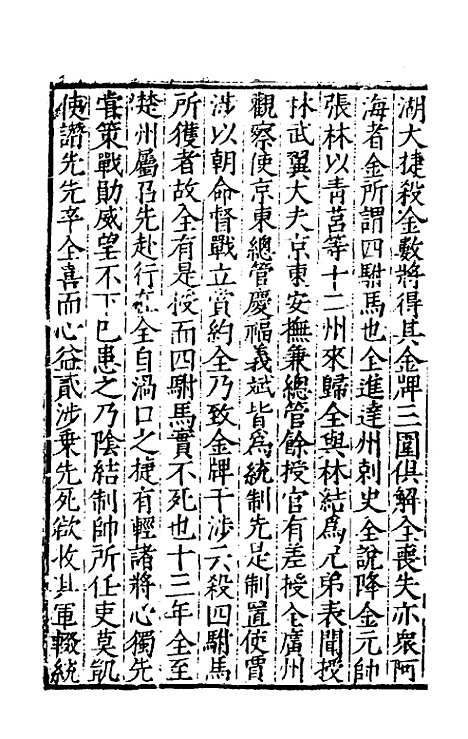 湖大捷殺金數將得其金牌三圍俱解全喪失亦衆阿
海者金所謂四駙馬也全進達州刺史全說降金元帥
張林以靑莒等十二州來歸全與林結爲兄弟表聞授
林武翼大夫京東安撫兼總管餘授官有差授全廣州
觀察使京東總管慶福義斌皆爲統制先是制置使賈
涉以朝命督戰立賞約全乃致金牌干涉云殺四駙馬
所獲者故全有是授而四駙馬實不死也十三年全至
楚州屬召先赴行在全自渦口之捷有輕諸將心獨先
嘗策戰勛威望不下已患之乃陰結制帥所任吏莫凱
使譖先先卒全喜而心益貳涉乗先死欲收其軍輟統